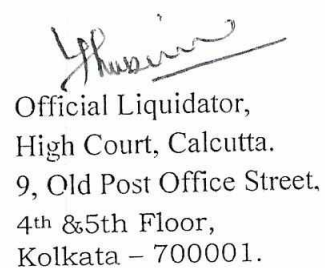 Official Liquidator,
High Court, Calcutta.
9, Old Post Office Street,
4th &5th Floor,
Kolkata – 700001.